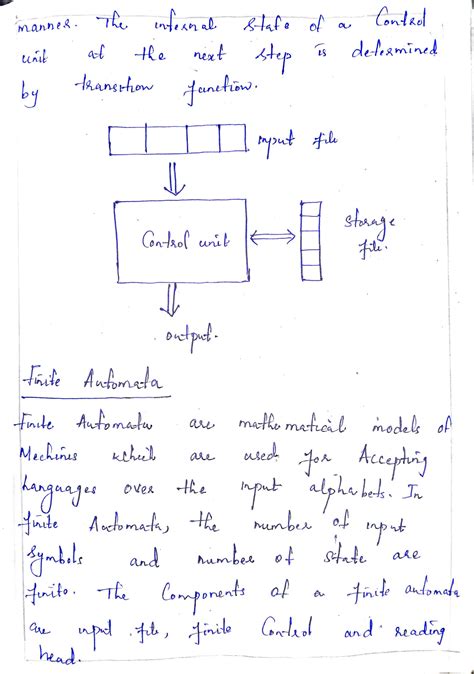 manner. The internal state of a Control
unit at the next step is determined
by transition function.
input file
Control unit
Storage
file.
output.
Finite Automata
Finite Automata are mathematical models of
Mechines which are used for Accepting
Languages over the input alphabets. In
finite Automata, the number of input
Symbols and number of state are
finite. The Components of a finite automata
are input file, finite Control and reading
head.